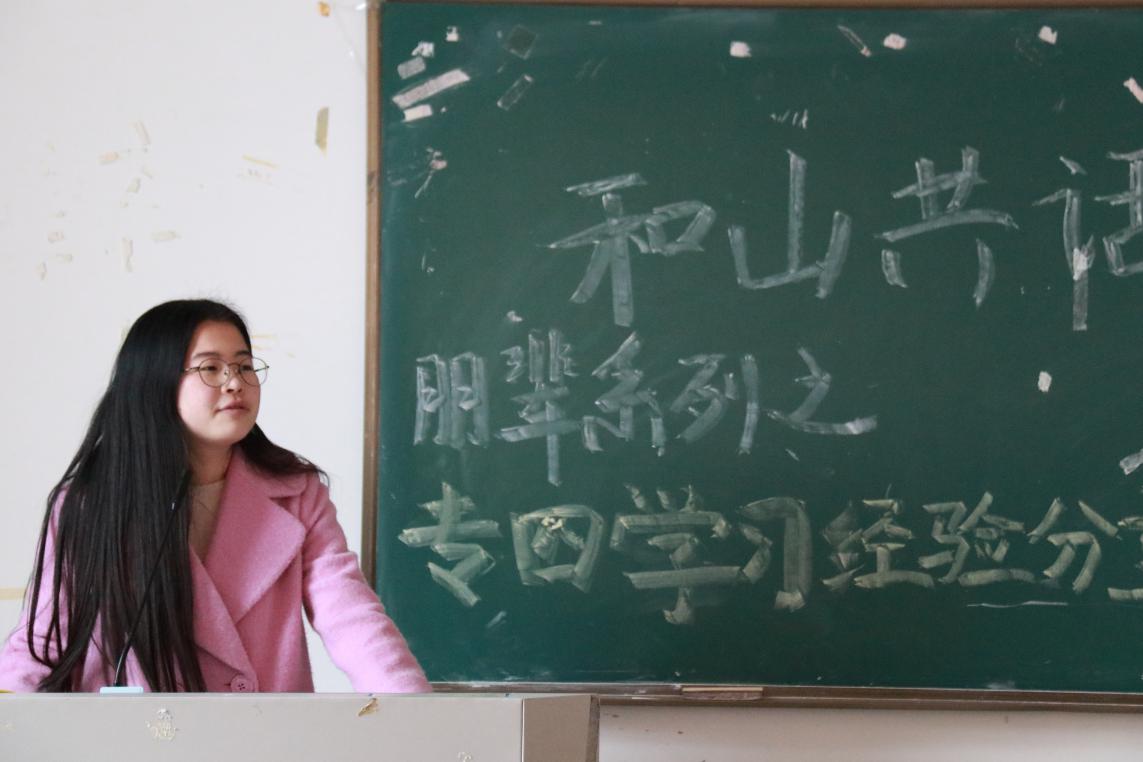 和山共
朋辈系列之
专四学习经验分